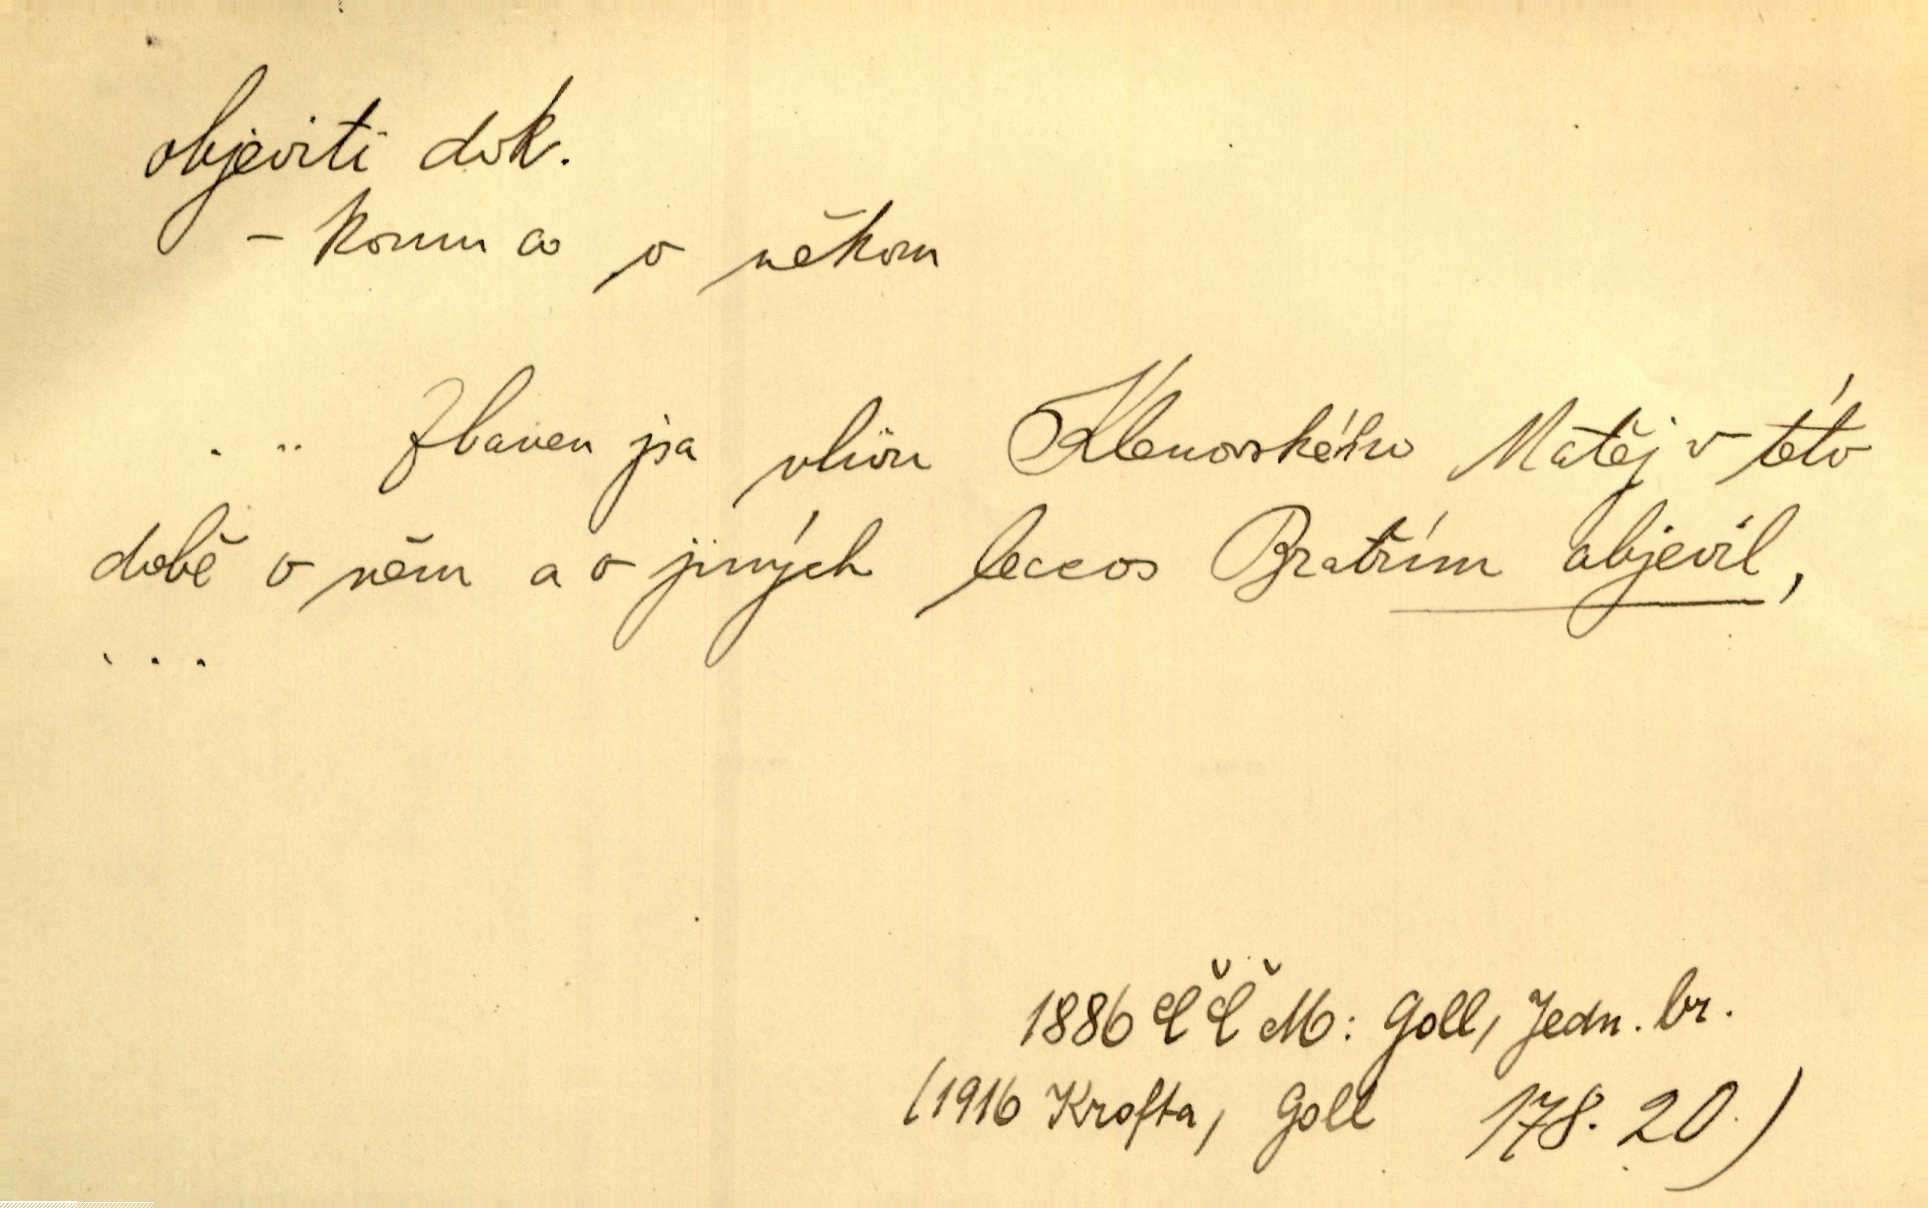 objeviti dok.
– komu co o někom
... Zbaven jsa vlivu Klenovského Matěj v této
době o něm a o jiných leccos Bratřím objevil,
...
1886 ČČM: Goll, Jedn. br.
(1916 Krofta, Goll 178. 20.)